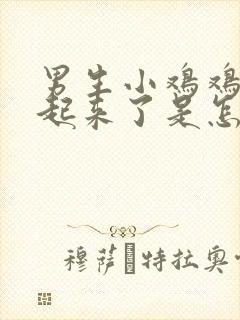 男生小鸡鸡
起来了是怎
穆萨 特拉奥